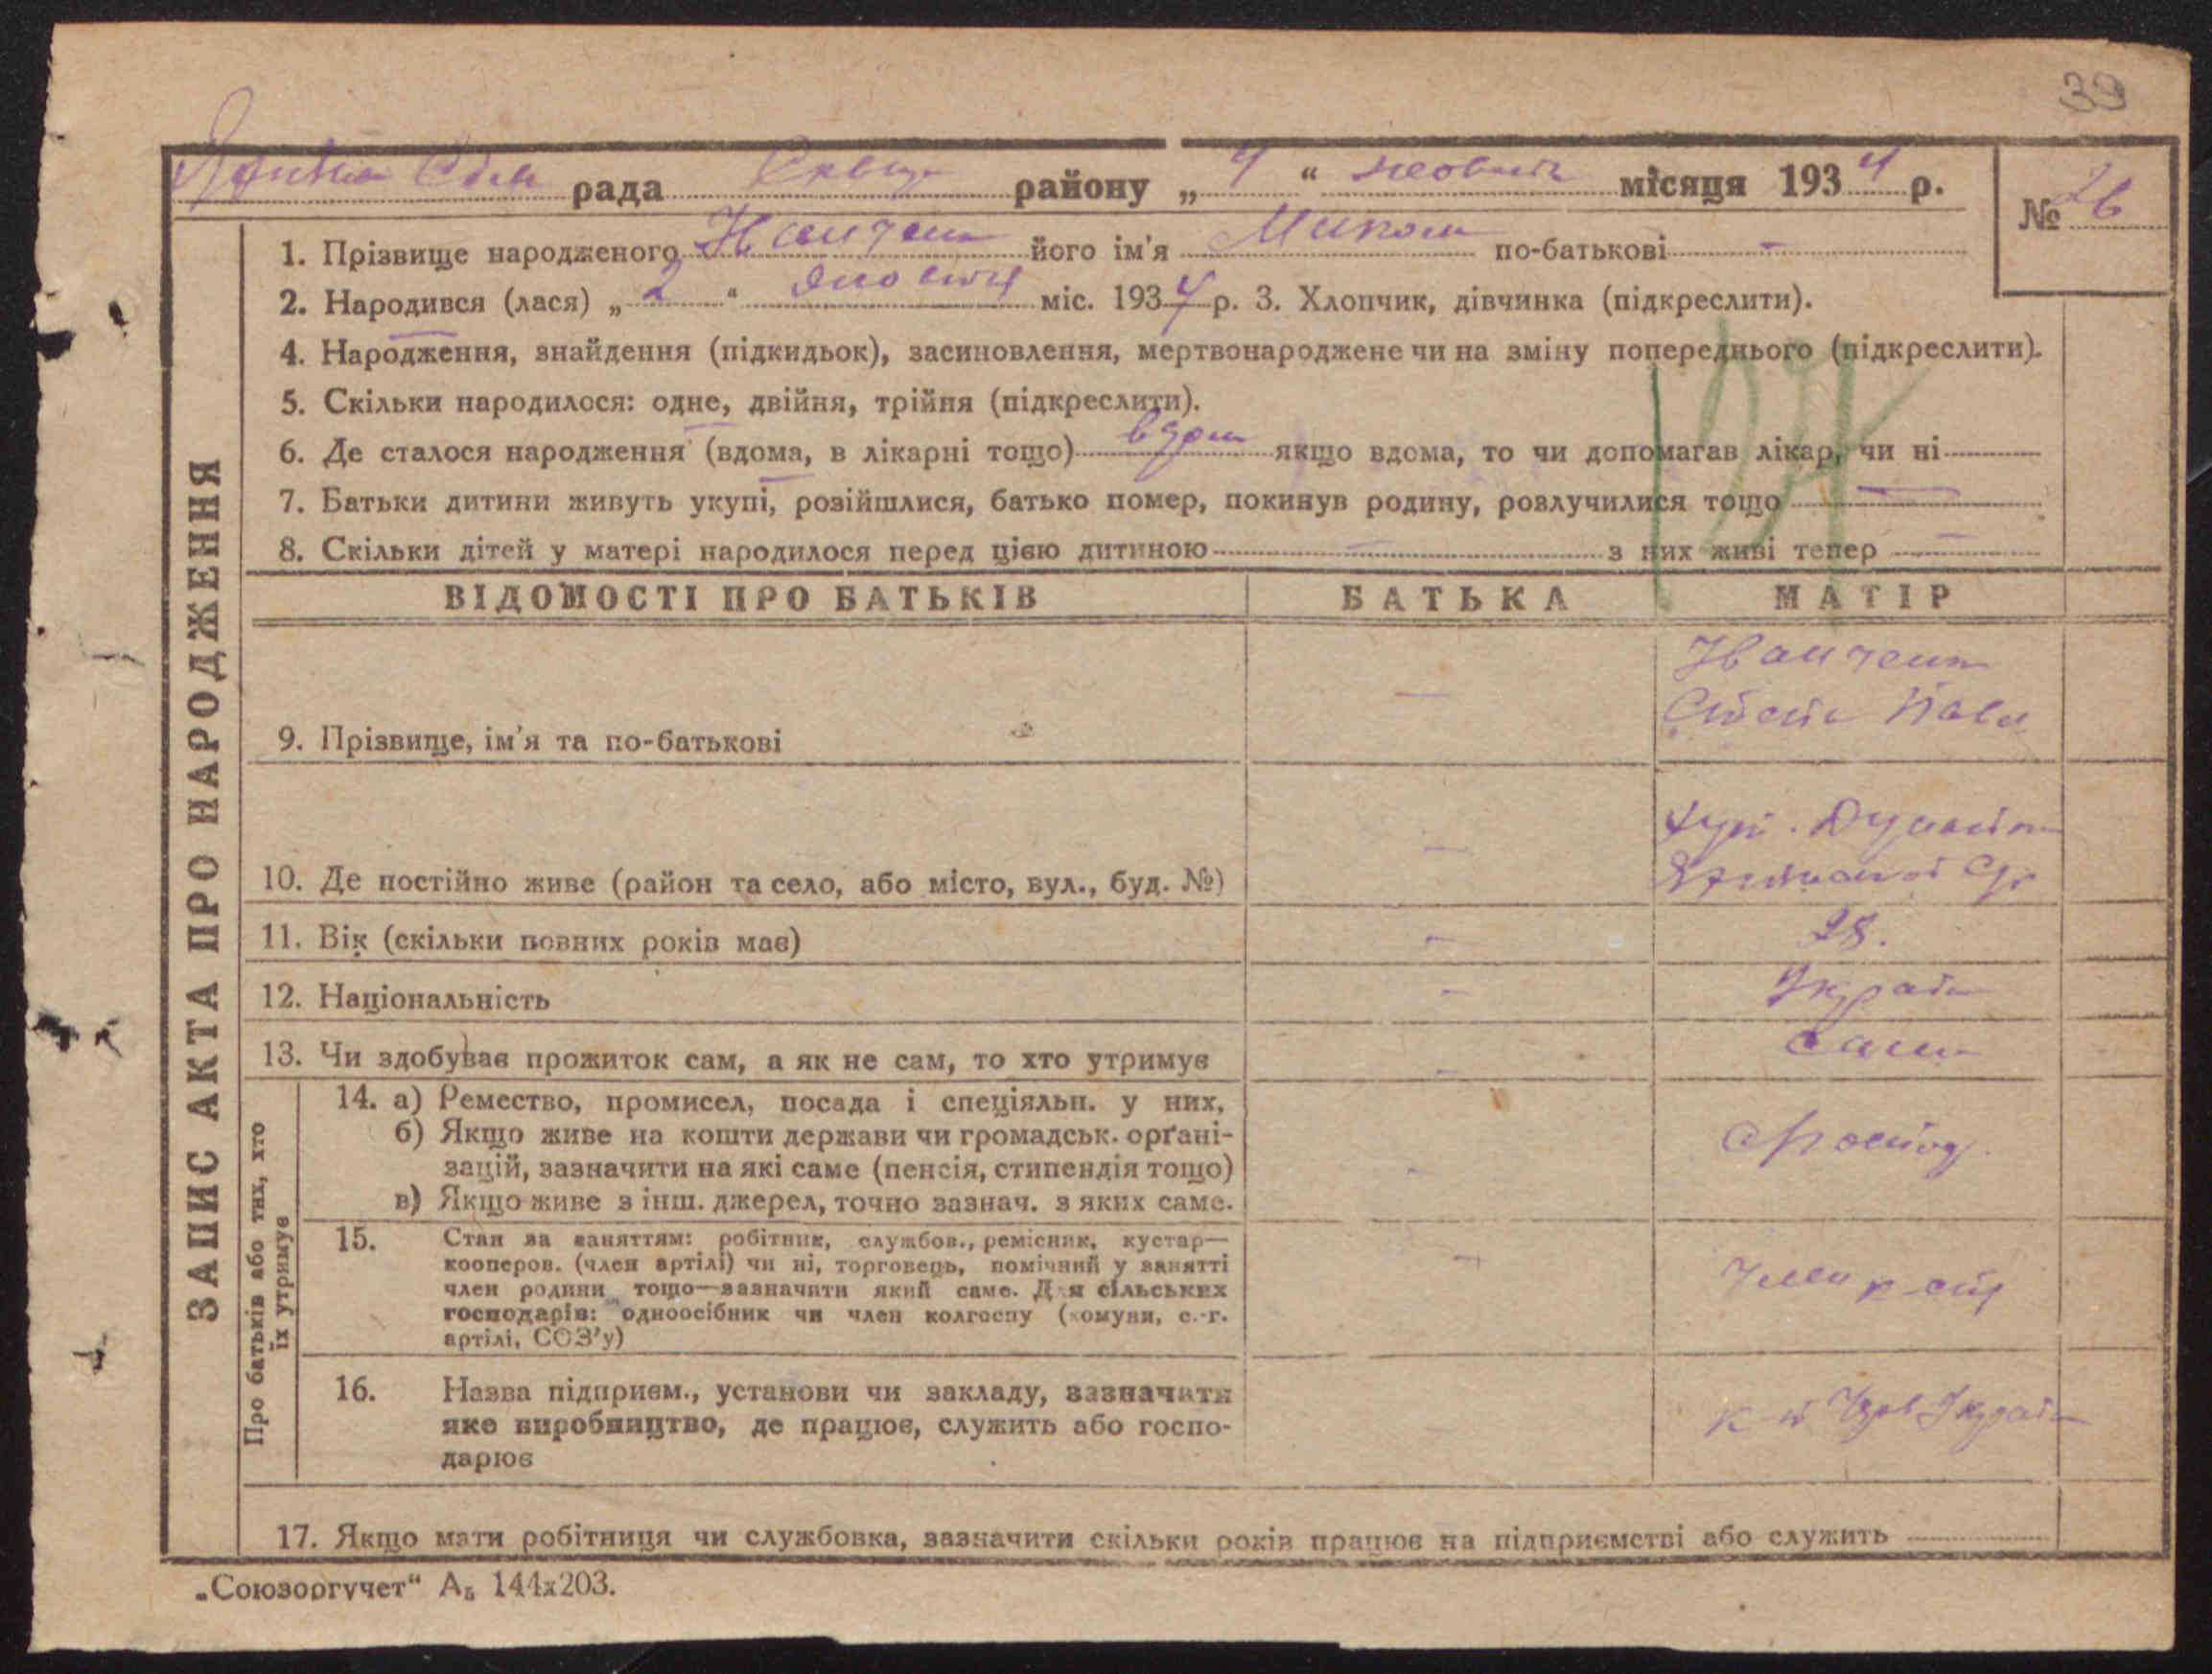 39
рада району „ 4 “ жовтн місяця 1934 р.
№ 26
1. Прізвище народженого його ім'я Микола по-батькові -
2. Народився (лася) „ 2 “ жовтня міс. 1934 р. 3. Хлопчик, дівчинка (підкреслити).
4. Народження, знайдення (підкидьок), засиновлення, мертвонароджене чи на зміну попереднього (підкреслити).
5. Скільки народилося: одне, двійня, трійня (підкреслити).
6. Де сталося народження (вдома, в лікарні тощо) вдома якщо вдома, то чи допомагав лікар, чи ні
7. Батьки дитини живуть укупі, розійшлися, батько помер, покинув родину, розлучилися тощо —
8. Скільки дітей у матері народилося перед цією дитиною — з них живі тепер —
ЗАПИС АКТА ПРО НАРОДЖЕННЯ
ВІДОМОСТІ ПРО БАТЬКІВ БАТЬКА МАТІР
9. Прізвище, ім'я та по-батькові —
10. Де постійно живе (район та село, або місто, вул., буд. №) — хут.
11. Вік (скільки повних років має) - 28.
12. Національність - Украін
13. Чи здобуває прожиток сам, а як не сам, то хто утримує - Сама
Про батьків або тих, хто
їх утримує
14. а) Ремество, промисел, посада і спеціяльн. у них,
б) Якщо живе на кошти держави чи громадськ. орґані-
зацій, зазначити на які саме (пенсія, стипендія тощо)
в) Якщо живе з інш. джерел, точно зазнач. з яких саме.
-
15. Стан за заняттям: робітник, службов., ремісник, кустар—
кооперов. (член артілі) чи ні, торговець, помічний у занятті
член родини тощо—зазначити який саме. Для сільських
господарів: одноосібник чи член колгоспу (комуни, с.-г.
артілі, СОЗ'у)
- Член
16. Назва підприєм., установи чи закладу, зазначити
яке виробництво, де працює, служить або госпо-
дарює
- Украін
17. Якщо мати робітниця чи службовка, зазначити скільки років працює на підприємстві або служить
„Союзоргучет“ А₅ 144х203.